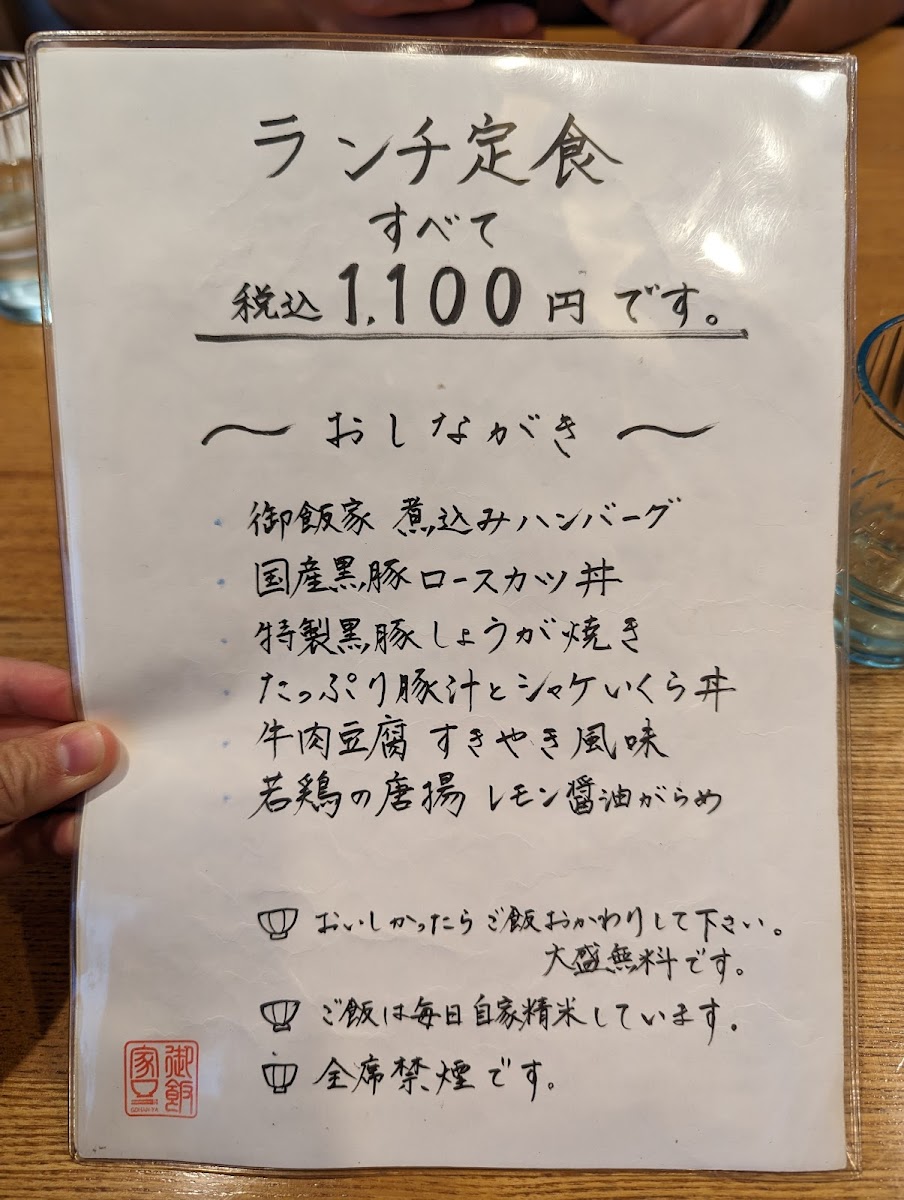 ランチ定食
すべて
税込 1,100円です。
〜 おしながき 〜
・御飯家 煮込みハンバーグ
・国産黒豚ロースカツ丼
・特製黒豚しょうが焼き
・たっぷり豚汁とシャケいくら丼
・牛肉豆腐 すきやき風味
・若鶏の唐揚 レモン醤油がらめ
おいしかったらご飯おかわりして下さい。
大盛無料です。
ご飯は毎日自家精米しています。
全席禁煙です。
御飯
家
GOHAN-YA